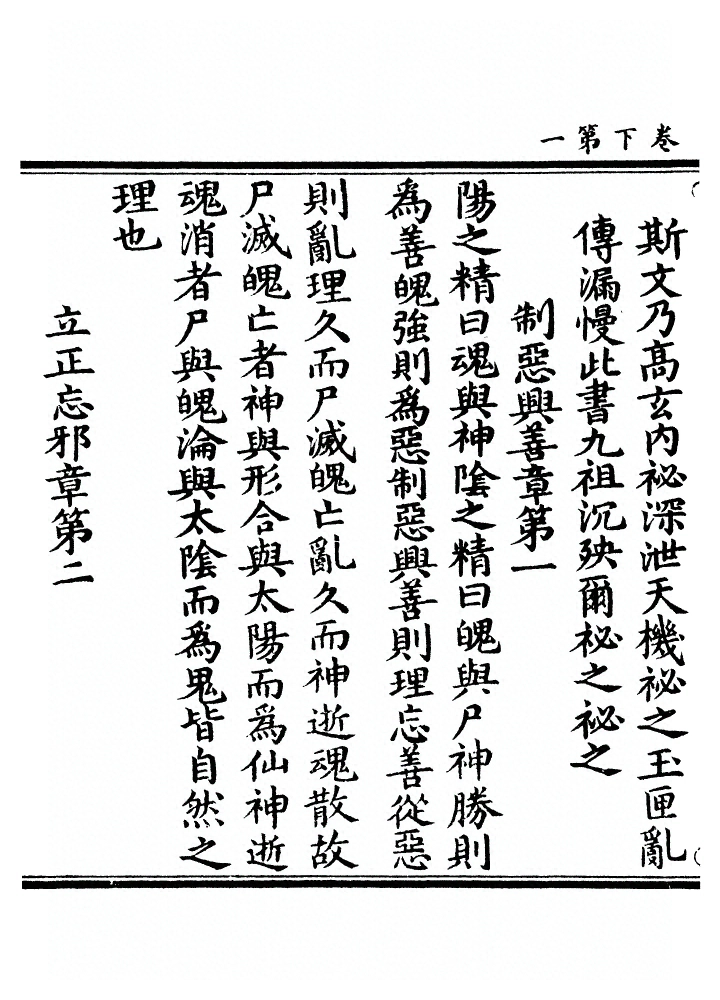 卷下第一
斯文乃高玄內祕深泄天機祕之玉匣亂
傳漏慢此書九祖沉殃爾祕之祕之
制惡興善章第一
陽之精曰魂與神陰之精曰魄與尸神勝則
為善魄強則為惡制惡興善則理忘善從惡
則亂理久而尸滅魄亡亂久而神逝魂散故
尸滅魄亡者神與形合與太陽而為仙神逝
魂消者尸與魄淪與太陰而為鬼皆自然之
理也
立正忘邪章第二